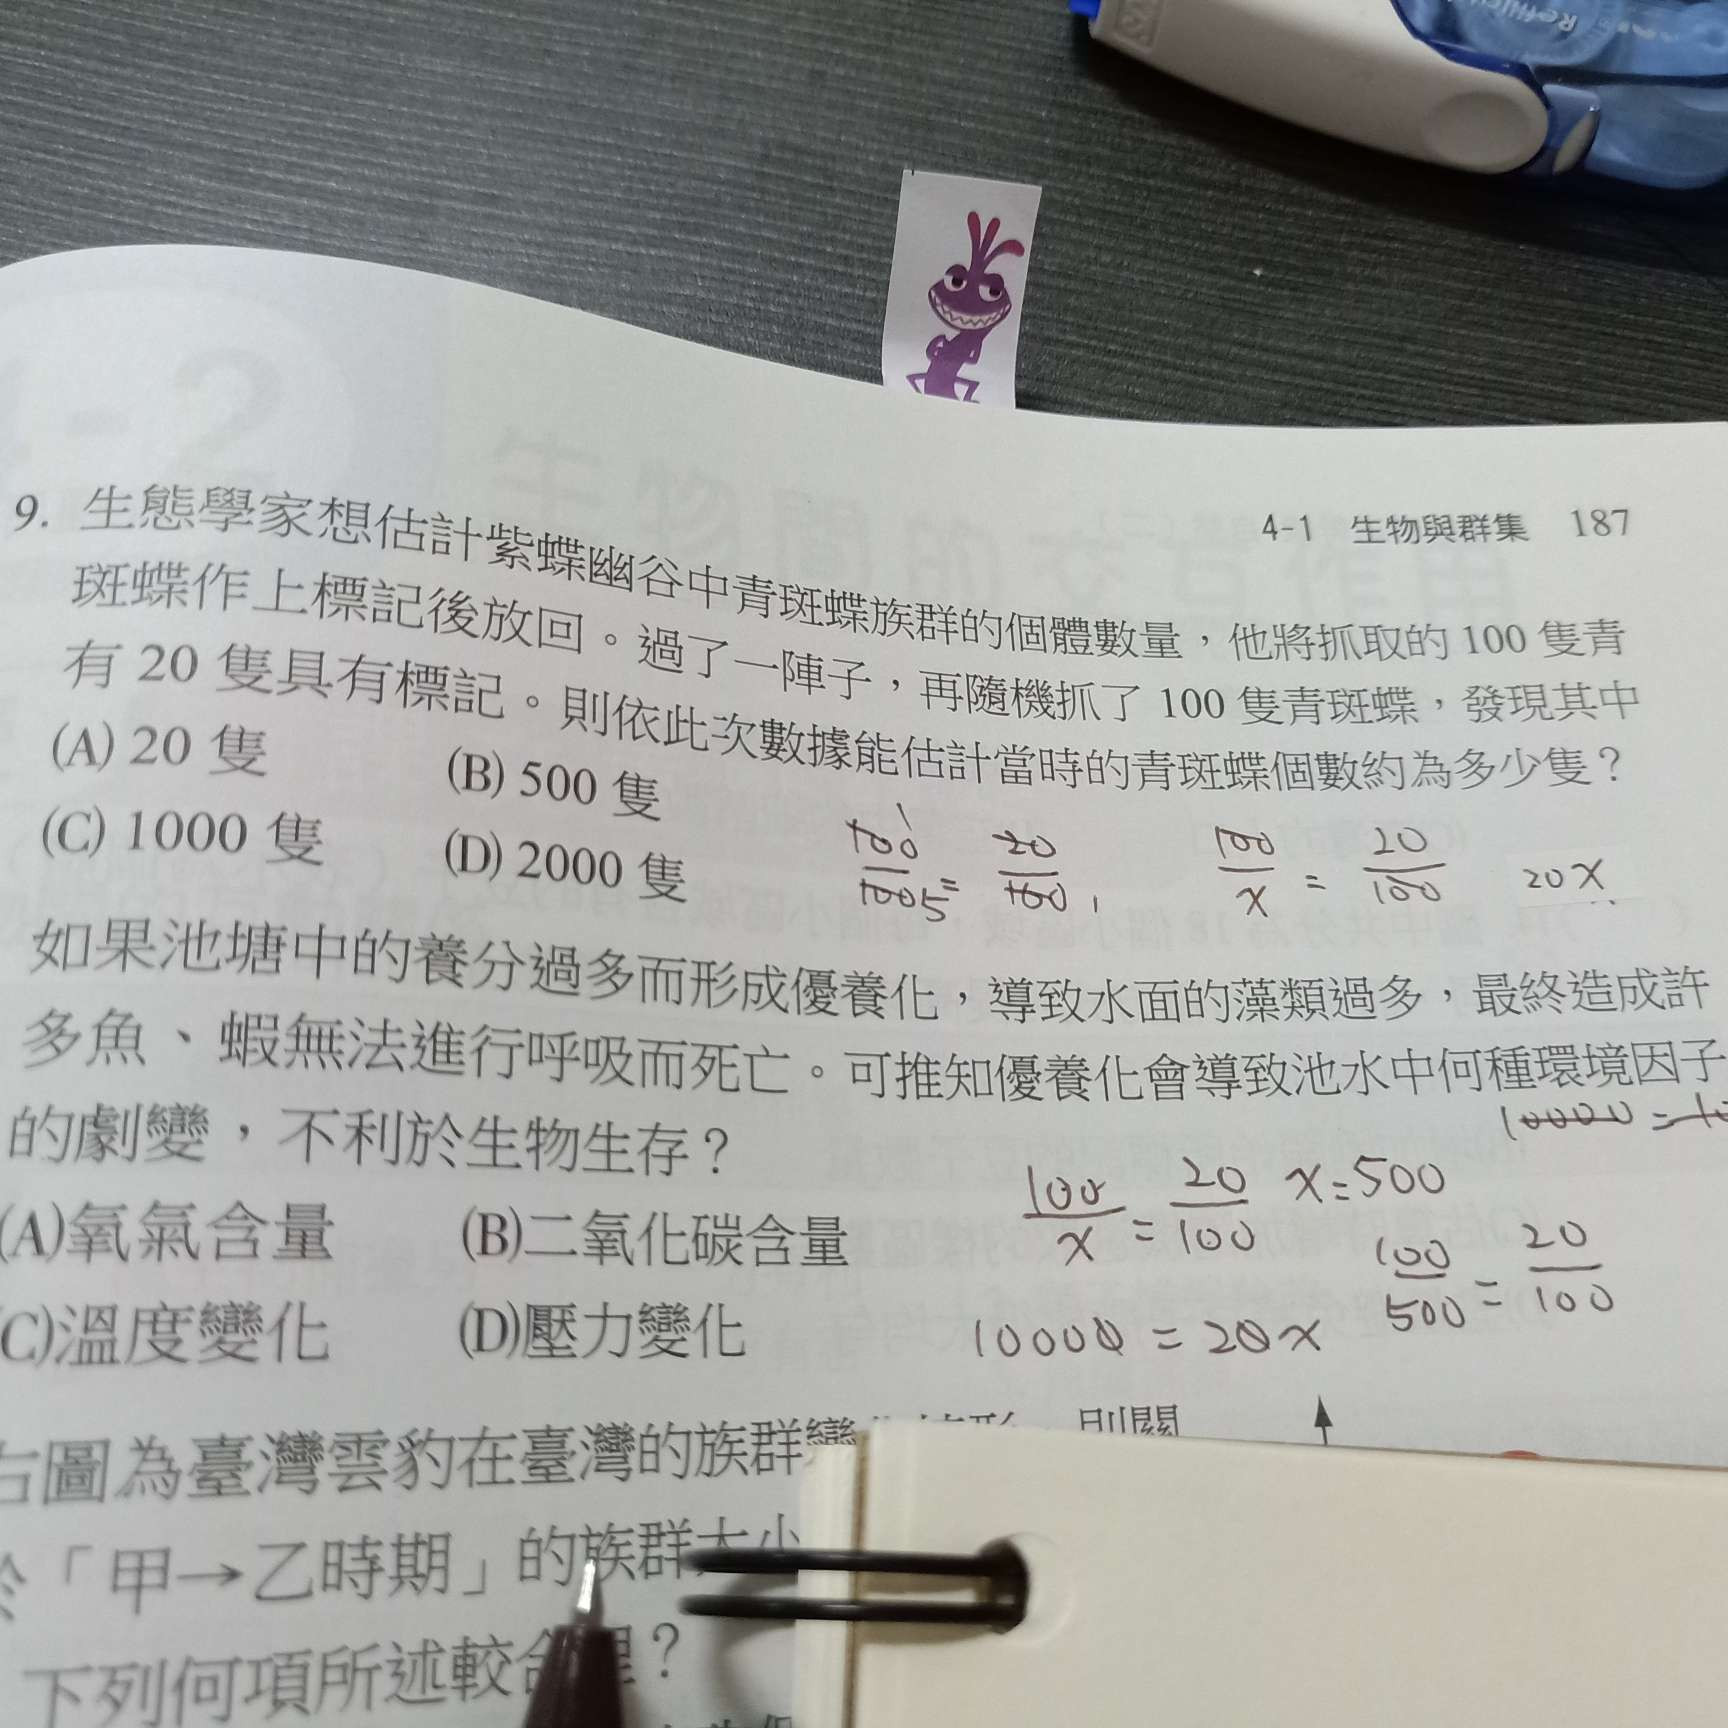 4-1 生物與群集 187
9. 生態學家想估計紫蝶幽谷中青斑蝶族群的個體數量，他將抓取的 100 隻青
斑蝶作上標記後放回。過了一陣子，再隨機抓了 100 隻青斑蝶，發現其中
有 20 隻具有標記。則依此次數據能估計當時的青斑蝶個數約為多少隻？
(A) 20 隻 (B) 500 隻
(C) 1000 隻 (D) 2000 隻
100/x = 20/100 20x
如果池塘中的養分過多而形成優養化，導致水面的藻類過多，最終造成許
多魚、蝦無法進行呼吸而死亡。可推知優養化會導致池水中何種環境因子
的劇變，不利於生物生存？
100/x = 20/100 x=500
(A)氧氣含量 (B)二氧化碳含量
100/500 = 20/100
(C)溫度變化 (D)壓力變化
10000 = 20x
右圖為臺灣雲豹在臺灣的族群變
則關
於「甲→乙時期」的族群大小
下列何項所述較合理？